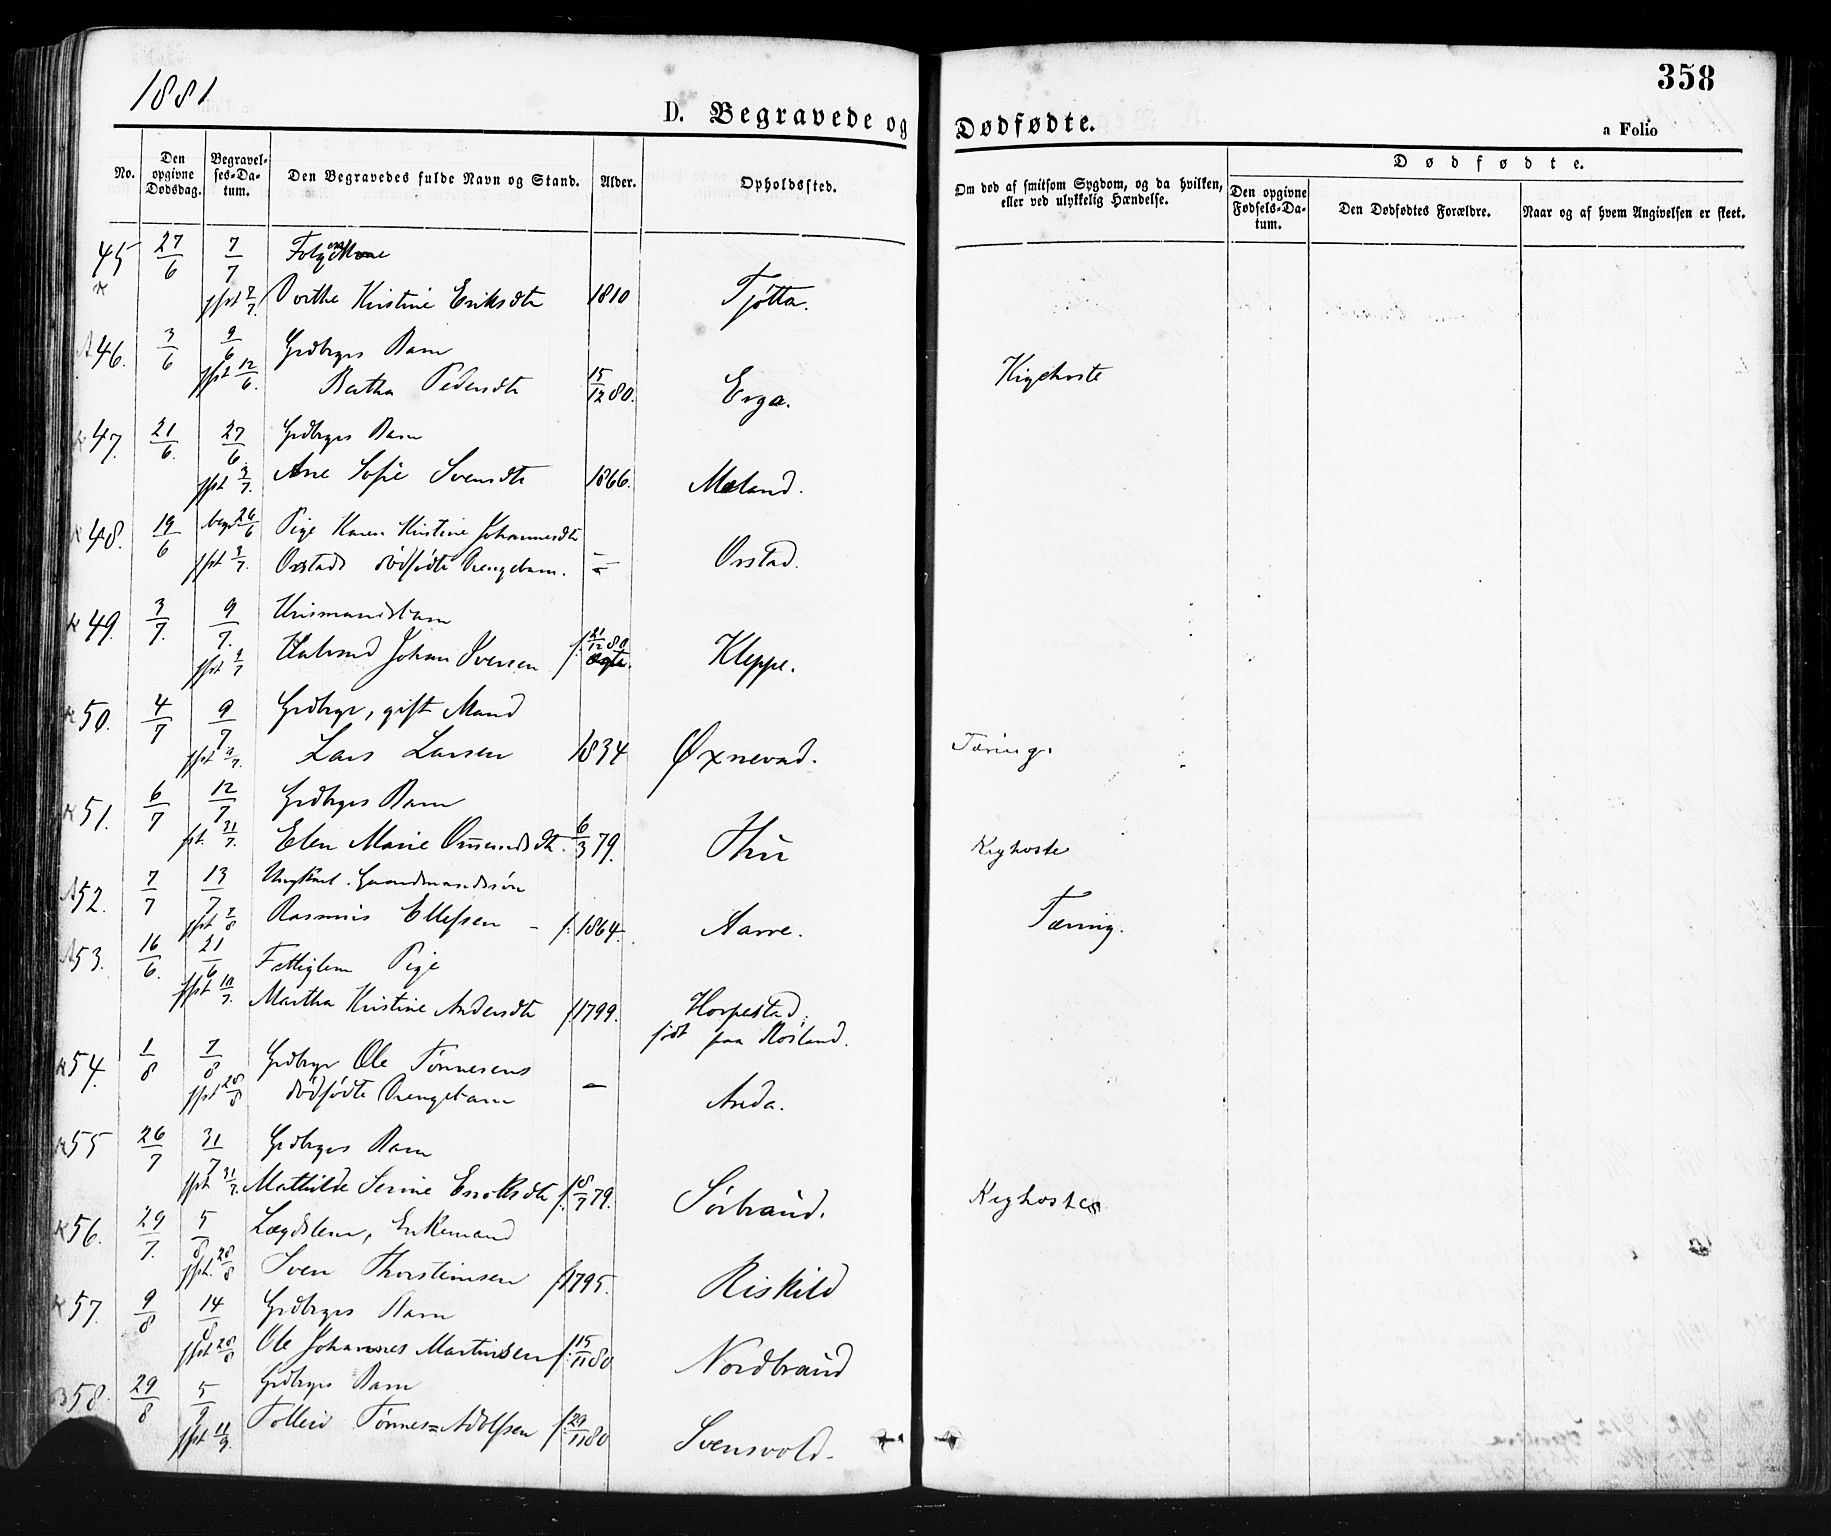 1881
358
D. Begravede og Dødfødte.
a Folio
No.
Den opgivne Dødsdag.
Begravelses-Datum.
Den Begravedes fulde Navn og Stand.
Alder.
Opholdssted.
Om død af smitsom Sygdom, og da hvilken, eller ved ulykkelig Hændelse.
Dødfødte.
Den opgivne Fødsels-Datum.
Den Dødfødtes Forældre.
Naar og af hvem Angivelsen er skeet.
45 27/6 7/7
jfpt 7/7. Dorthe Kristine Eriksdtr 1810 Tjøtta.
46. 3/6 9/6 Grdbrgrs Barn
jfpt 12/6. Bertha Pedersdtr 15/12 80. Erga. Kighoste
47. 21/6. 27/6. Grdbrgrs Barn
jfpt 3/7. Ane Sofie Svensdtr 1866. Mæland.
48. 19/6 begr. 26/6 Pige Karen Kristine Johannesdtr
jfpt 3/7. Orstads dødfødte Drengebarn. — Orstad.
49. 3/7. 9/7. Husmandsbarn
jfpt 9/7 Halvard Johan Iversen f. 21/12 80 ægte. Kleppe.
50. 4/7 9/7 Grdbrgr, gift Mand
Lars Larsen 1834 Øxnevad. Tæring.
51. 6/7 12/7 Grdbrgrs Barn
jpt. 31/7. Elen Marie Ommundsdtr. 6/3 79. Thu Kighoste
52. 7/7 13/7 Ungkarl. Gaardmandssøn
jfpt 7/8 Rasmus Ellefsen – f. 1864. Aarre. Tæring.
53. 16/6. 21/6 Fattiglem Pige
jfpt 10/7. Martha Kristine Andersdtr f. 1799. Horpestad,
født paa Rosland.
54. 1/8 7/8 Grdbrgr Ole Tønnesens
jfpt 28/8 dødfødte Drengebarn — Anda.
55 26/7 31/7 Grdbrgrs Barn
jfpt 31/7. Mathilde Serine Enoksdtr f. 18/7 79. Sørbraud. Kighoste
56. 29/7. 5/8 Lægdslem, Enkemand
jfpt. 28/8 Sven Thorsteinsen f. 1795. Riskild
57. 9/8 14/8 Grdbrgrs Barn
jfpt 28/8 Ole Johannes Martinsen f. 15/11 80 Nordbraud
58. 29/8 5/9 Grdbrgrs Barn
jfpt 11/9. Tolleiv Tønnes Adolfsen f. 29/11 80 Svensvold.